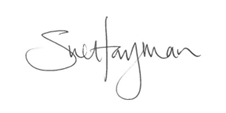 Sue Hayman